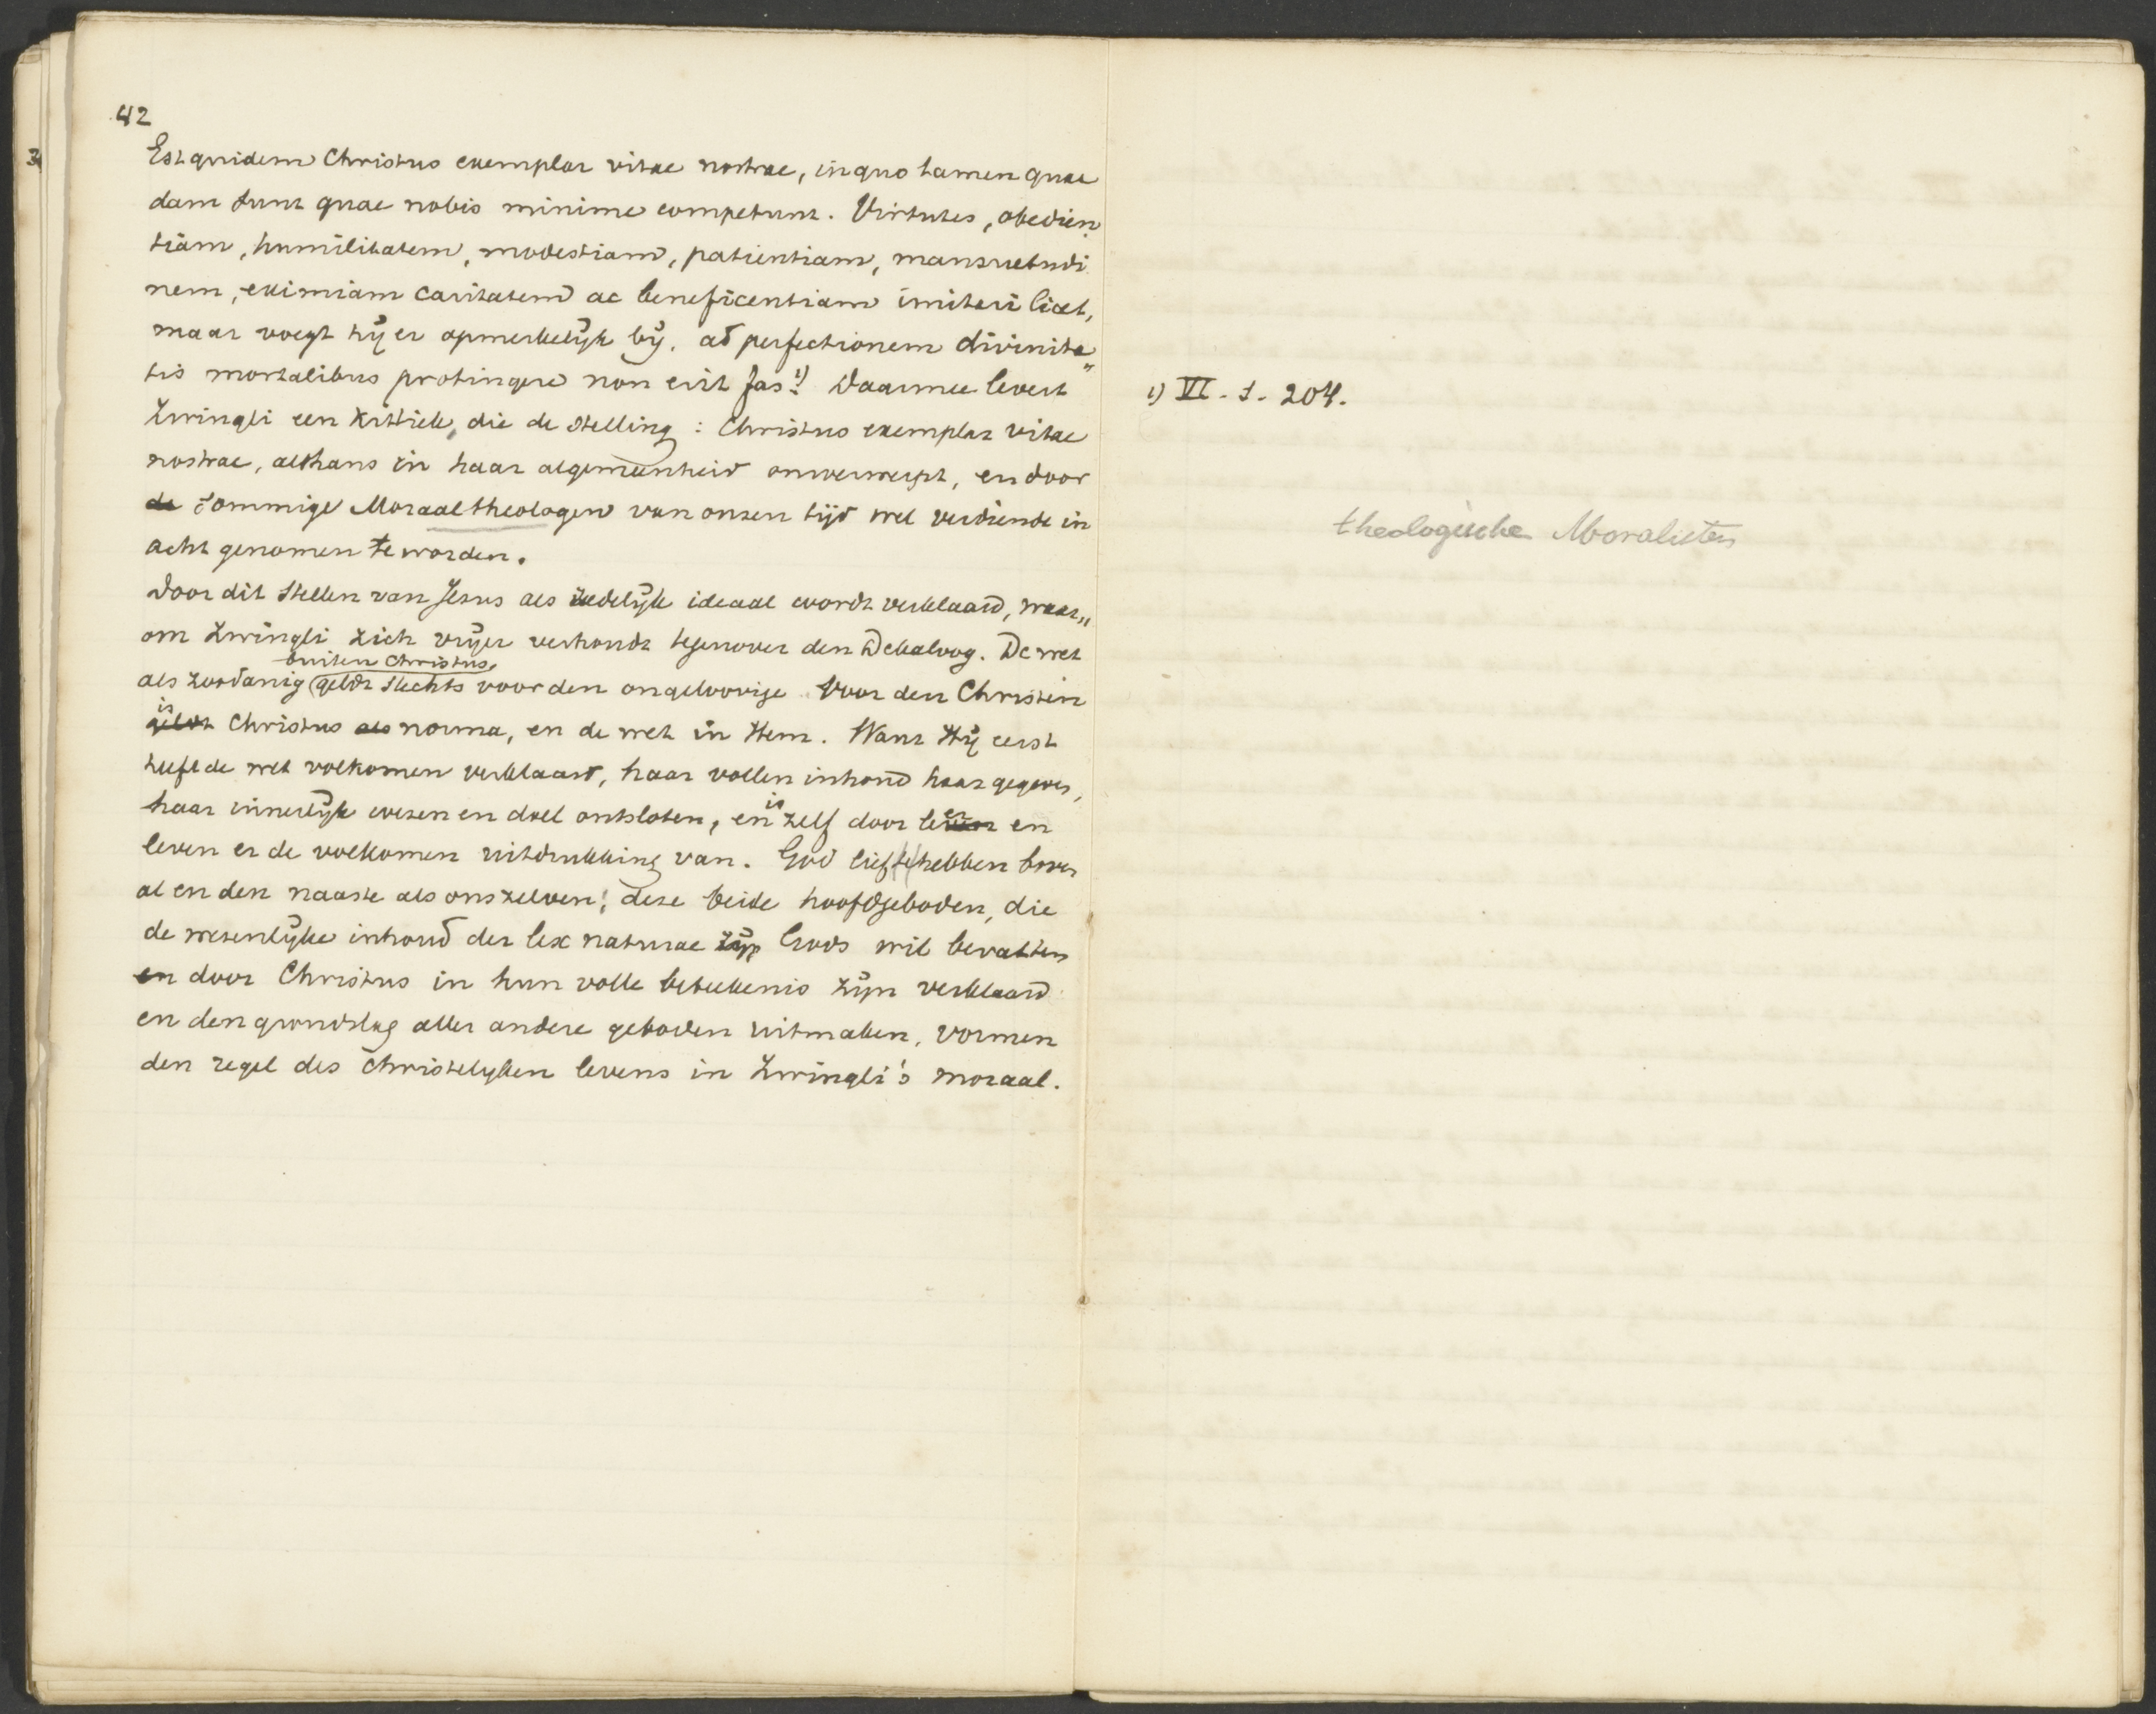 42
3
Est quidem Christus exemplar vitae nostrae, in quo tamen quae
dam sunt quae nobis minime competunt. Virtutes, obedien
tiam, humilitatem, modestiam, patientiam, mansuetudi
nem, eximiam caritatem ac beneficentiam imitari licet,
maar voegt hij er opmerkelijk bij, ad perfectionem divinita„
tis mortalibus protingere non erit fas. 1) Daarmee levert
Zwingli een kritiek, die de stelling: Christus exemplar vitae
nostrae, althans in haar algemeenheid omverwerpt, en door
de sommige Moraaltheologen van onzen tijd wel verdiende in
acht genomen te worden.
Door dit stellen van Jesus als zedelijk ideaal wordt verklaard, waar„
om Zwingli zich vrijer verhoudt tegenover den Dekaloog. De wet
buiten Christus,
als zoodanig (geldt slechts voor den ongeloovige. Voor den Christen
is
geldt Christus als norma, en de wet in Hem. Want Hij eerst
heeft de wet volkomen verklaard, haar vollen inhoud haar gegeven,
haar innerlijk wezen en doel ontsloten, en is zelf door leer en
leven er de volkomen uitdrukking van. God lief te hebben boven
al en den naaste als onszelven; deze beide hoofdgeboden, die
de wezenlijke inhoud der lex naturae zijn Gods wil bevatten
en door Christus in hun volle beteekenis zijn verklaard
en den grondslag aller andere geboden uitmaken, vormen
den regel des christelijken levens in Zwingli's moraal.
1) VI. 1. 204.
theologische Moralisten